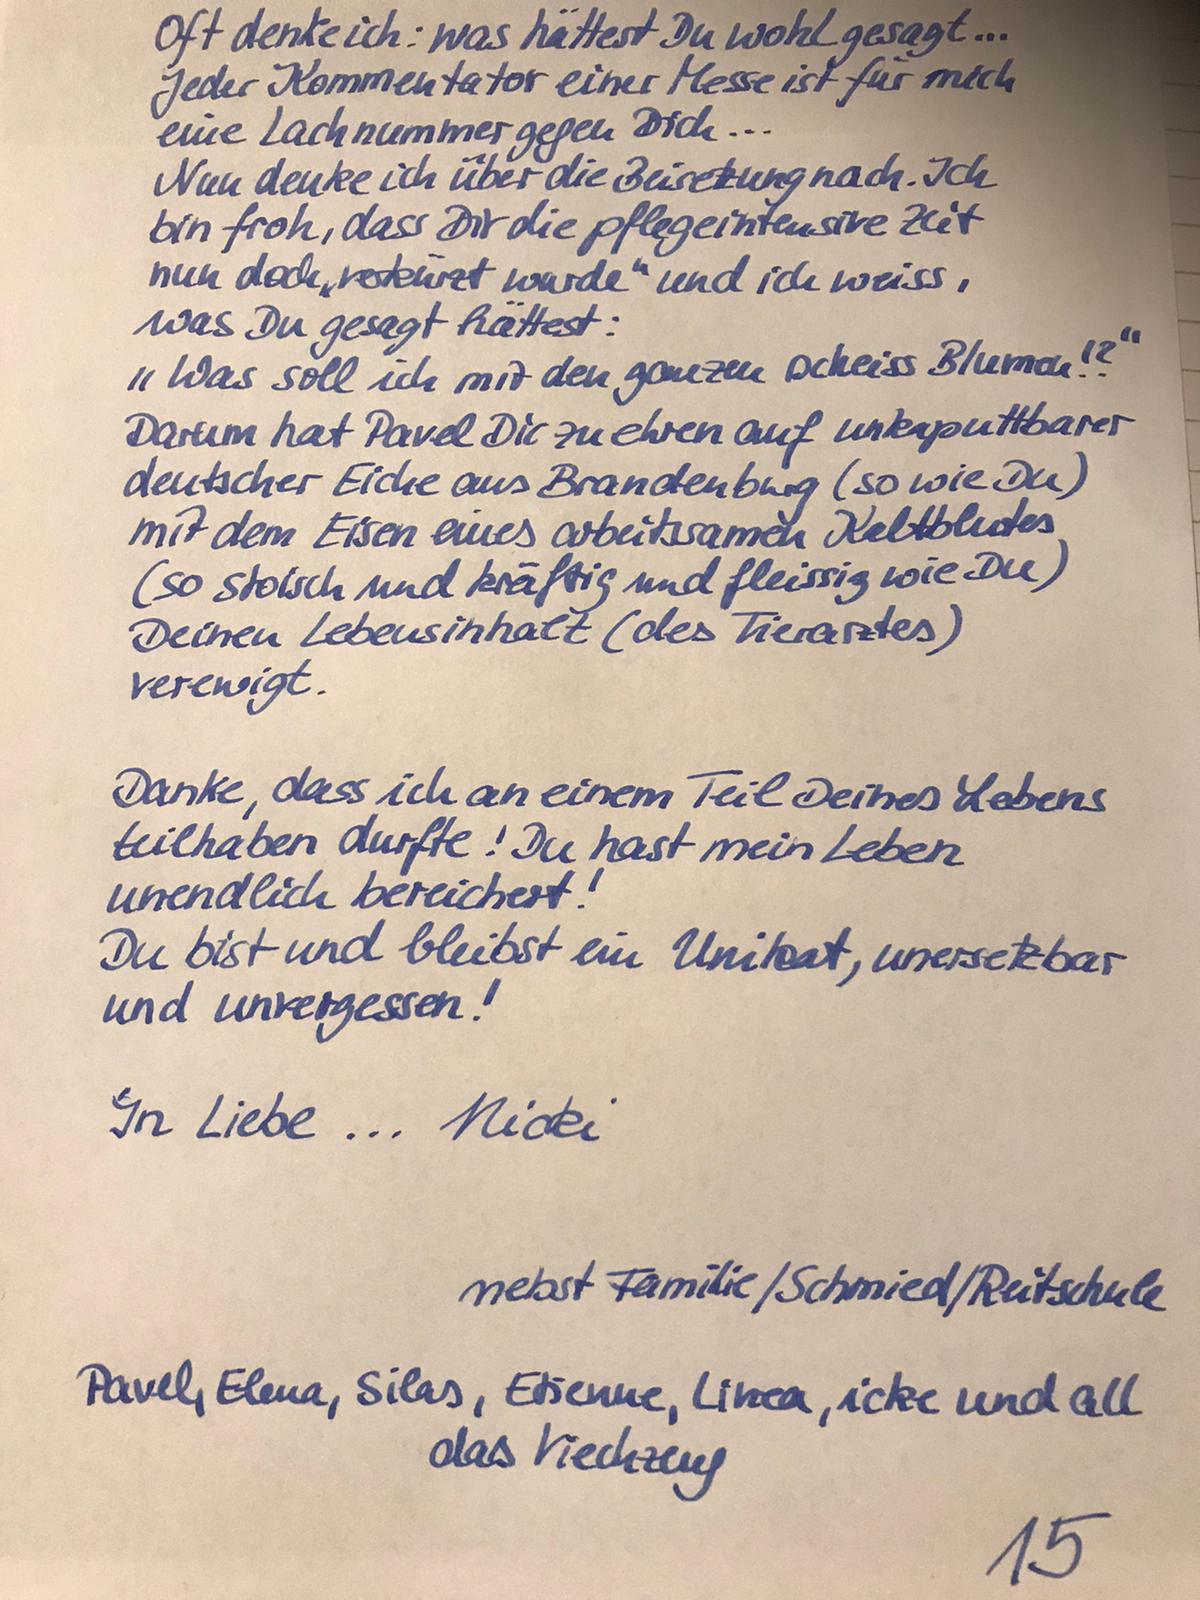 Oft denke ich: was hättest Du wohl gesagt...
Jeder Kommentator einer Messe ist für mich
eine Lachnummer gegen Dich...
Nun denke ich über die Beisetzung nach. Ich
bin froh, dass Dir die pflegeintensive Zeit
nun doch „verkürzt wurde“ und ich weiss,
was Du gesagt hättest:
„Was soll ich mit den ganzen scheiss Blumen!?“
Darum hat Pavel Dir zu ehren auf unkaputtbarer
deutscher Eiche aus Brandenburg (so wie Du)
mit dem Eisen eines arbeitsamen Kaltblutes
(so stoisch und kräftig und fleissig wie Du)
Deinen Lebensinhalt (des Tierarztes)
verewigt.
Danke, dass ich an einem Teil Deines Lebens
teilhaben durfte! Du hast mein Leben
unendlich bereichert!
Du bist und bleibst ein Unikat, unersetzbar
und unvergessen!
In Liebe ... Nicki
nebst Familie/Schmied/Reitschule
Pavel, Elena, Silas, Etienne, Linea, icke und all
das Viechzeug
15